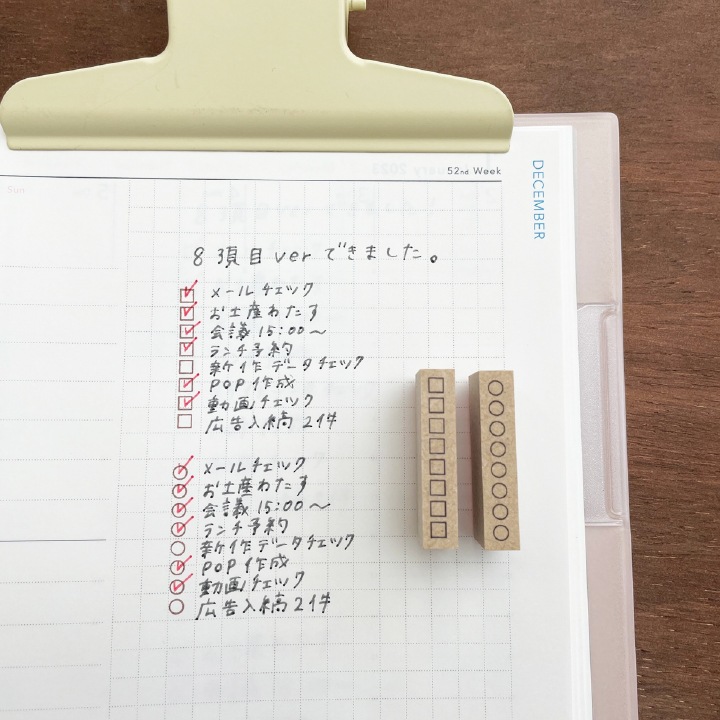 52nd Week
Sun
DECEMBER
8項目verできました。
メールチェック
お土産わたす
会議15:00〜
ランチ予約
新作データチェック
POP作成
動画チェック
広告入稿2件
メールチェック
お土産わたす
会議15:00〜
ランチ予約
新作データチェック
POP作成
動画チェック
広告入稿2件